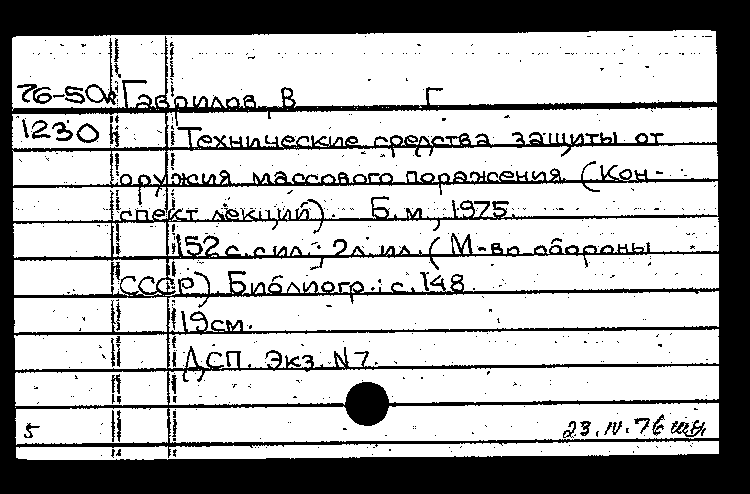 76-50к Гаврилов, В Г
1230 Технические средства защиты от
оружия массового поражения. (Кон-
спект лекций). Б.м., 1975.
152 с. с ил.; 2 л. ил. (М-во обороны
СССР). Библиогр.: с. 148
19 см.
ДСП. Экз. N 7.
5 23.IV.76